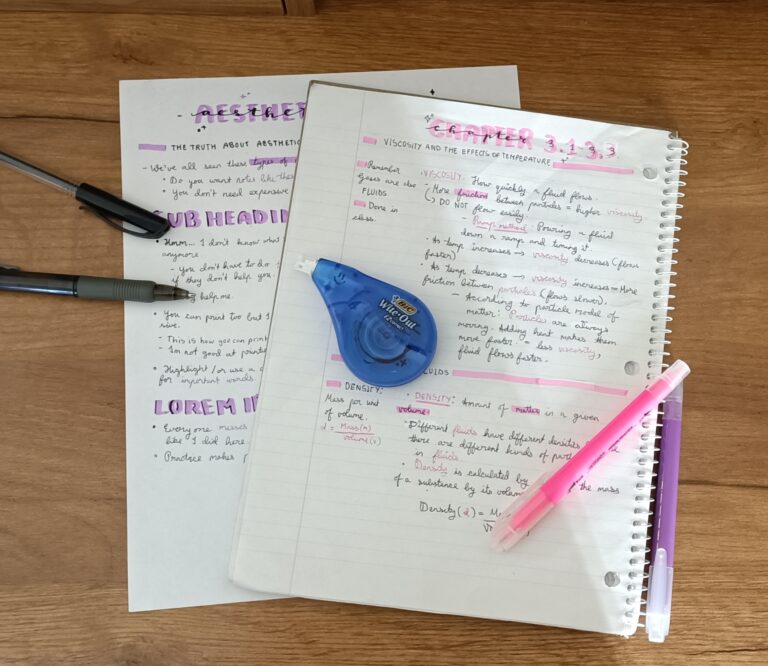 - AESTHE
- aesthe
THE TRUTH ABOUT AESTHETIC
- We've all seen these types of
• Do you want notes like these
• You don't need expensive
SUB HEADIN
• Hmm... I don't know what
anymore.
- You don't have to do
if they don't help you
help me.
• You can paint too but I
- This is how you can prin
- I'm not good at painti
• Highlight / or use a
for important words.
LOREM I
• Everyone messes
like I did here
• Practice makes
CHAPTER 3.1-3.3
chapter
VISCOSITY AND THE EFFECTS OF TEMPERATURE
Remember
Gases are also
FLUIDS
Done in
class.
• VISCOSITY: How quickly a fluid flows.
- More friction between particles = higher viscosity
↳ DO NOT flow easily.
- Ramp method: Pouring a fluid
down a ramp and timing it.
• As temp increases → viscosity decreases (flows
faster)
• As temp decreases → viscosity increases = More
friction between particles (flows slower).
- According to particle model of
matter: Particles are always
moving. Adding heat makes them
move faster = less viscosity,
fluid flows faster.
BIC
Wite-Out
UIDS
DENSITY:
Mass per unit
of volume.
d = Mass(m)
volume(v)
• DENSITY: Amount of matter in a given
volume
• Different fluids have different densities
there are different kinds of part
in fluids
• Density is calculated by the mass
of a substance by its volum
Density(d) = M